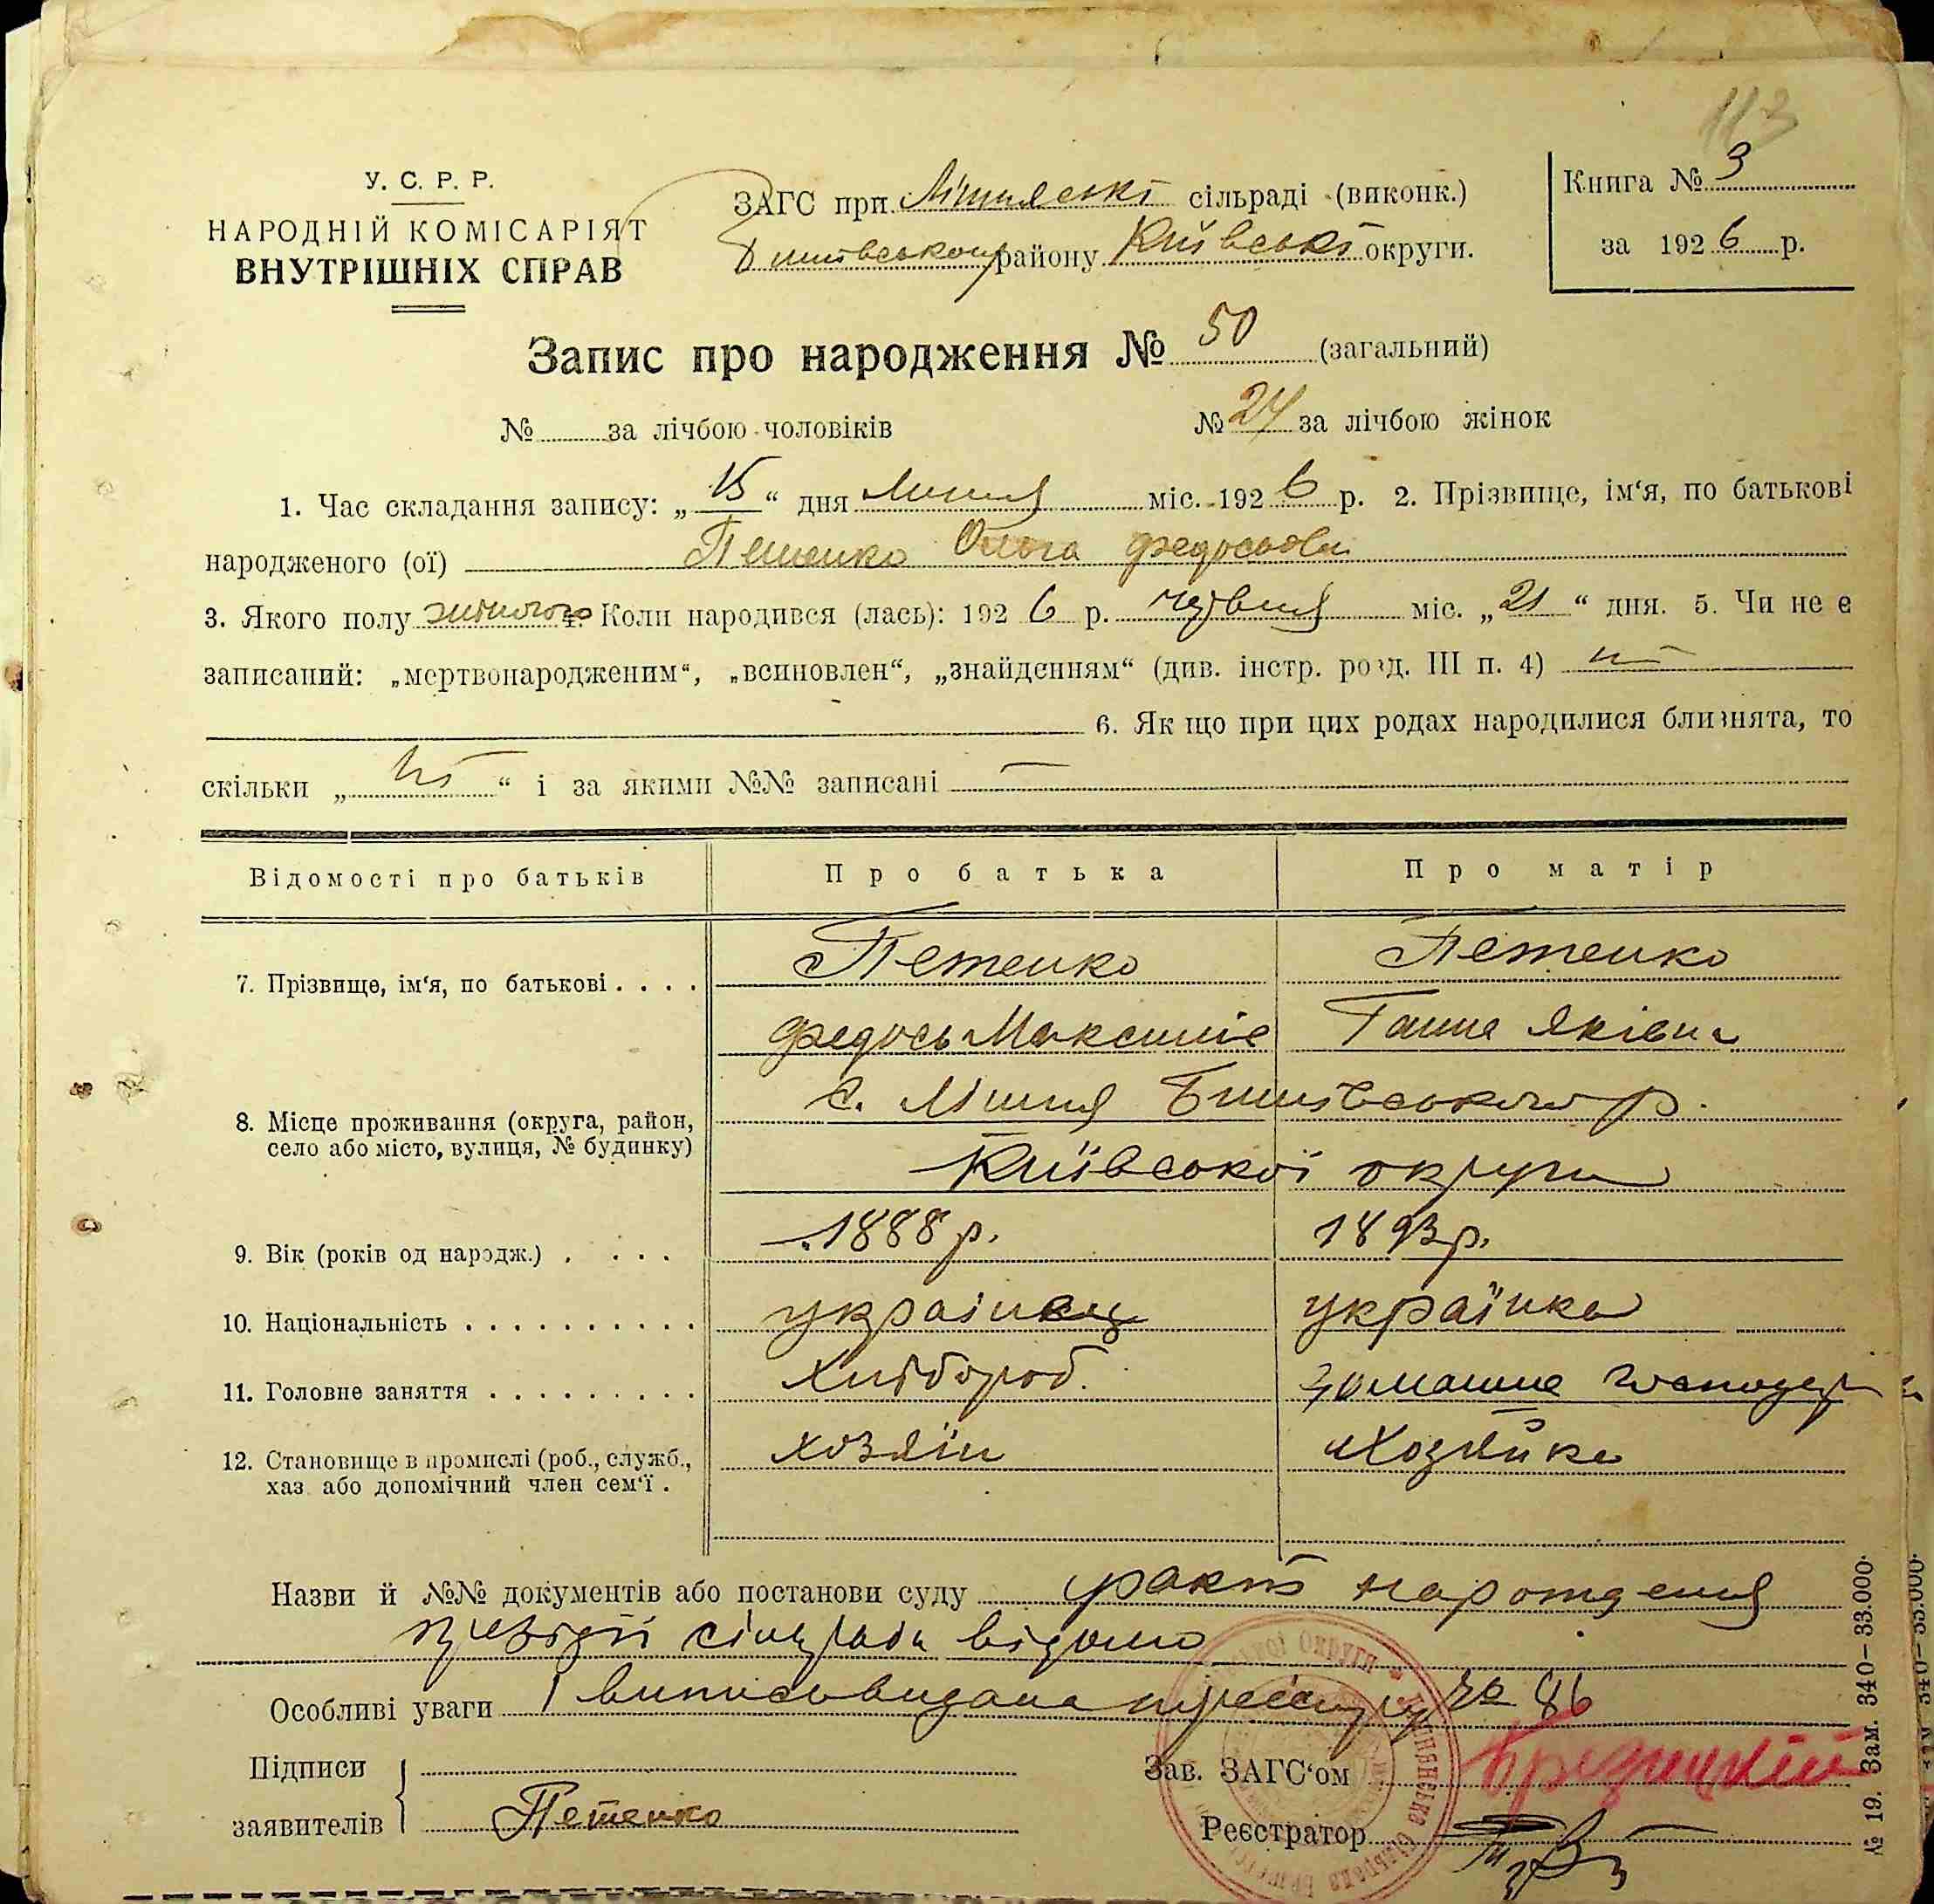 113
У. С. Р. Р.
НАРОДНІЙ КОМІСАРІЯТ
ВНУТРІШНІХ СПРАВ
ЗАГС при Лишнянські сільраді (виконк.)
Бишівському району Київські округи.
Книга № 3
за 1926 р.
Запис про народження № 50 (загальний)
№ за лічбою чоловіків № 24 за лічбою жінок
1. Час складання запису: „15“ дня липня міс. 1926 р. 2. Прізвище, ім‘я, по батькові
народженого (ої) Петенко Ольга Федосьова
3. Якого полу жіночого 4. Коли народився (лась): 1926 р. червня міс. „21“ дня. 5. Чи не є
записаний: „мертвонародженим“, „всиновлен“, „знайденням“ (див. інстр. розд. III п. 4) ні
6. Як що при цих родах народилися близнята, то
скільки „ні“ і за якими №№ записані —
Відомості про батьків Про батька Про матір
7. Прізвище, ім‘я, по батькові . . . . Петенко Петенко
Федось Максимів Ганна Яківна
8. Місце проживання (округа, район, село або місто, вулиця, № будинку) с. Лишня Бишівського р.
Київської округи
9. Вік (років од народж.) . . . . 1888 р. 1893 р.
10. Національність . . . . . . . . . . українец українка
11. Головне заняття . . . . . . . . . Хлібороб. домашнє господар
12. Становище в промислі (роб., служб., хаз. або допомічний член сем‘ї . хозяїн Хозяйка
Назви й №№ документів або постанови суду факт народження
президії сільради відомо
Особливі уваги Випись видана за 86
Підписи
заявителів Петенко
Зав. ЗАГС‘ом
Реєстратор
№ 19. Зам. 340—33.000.